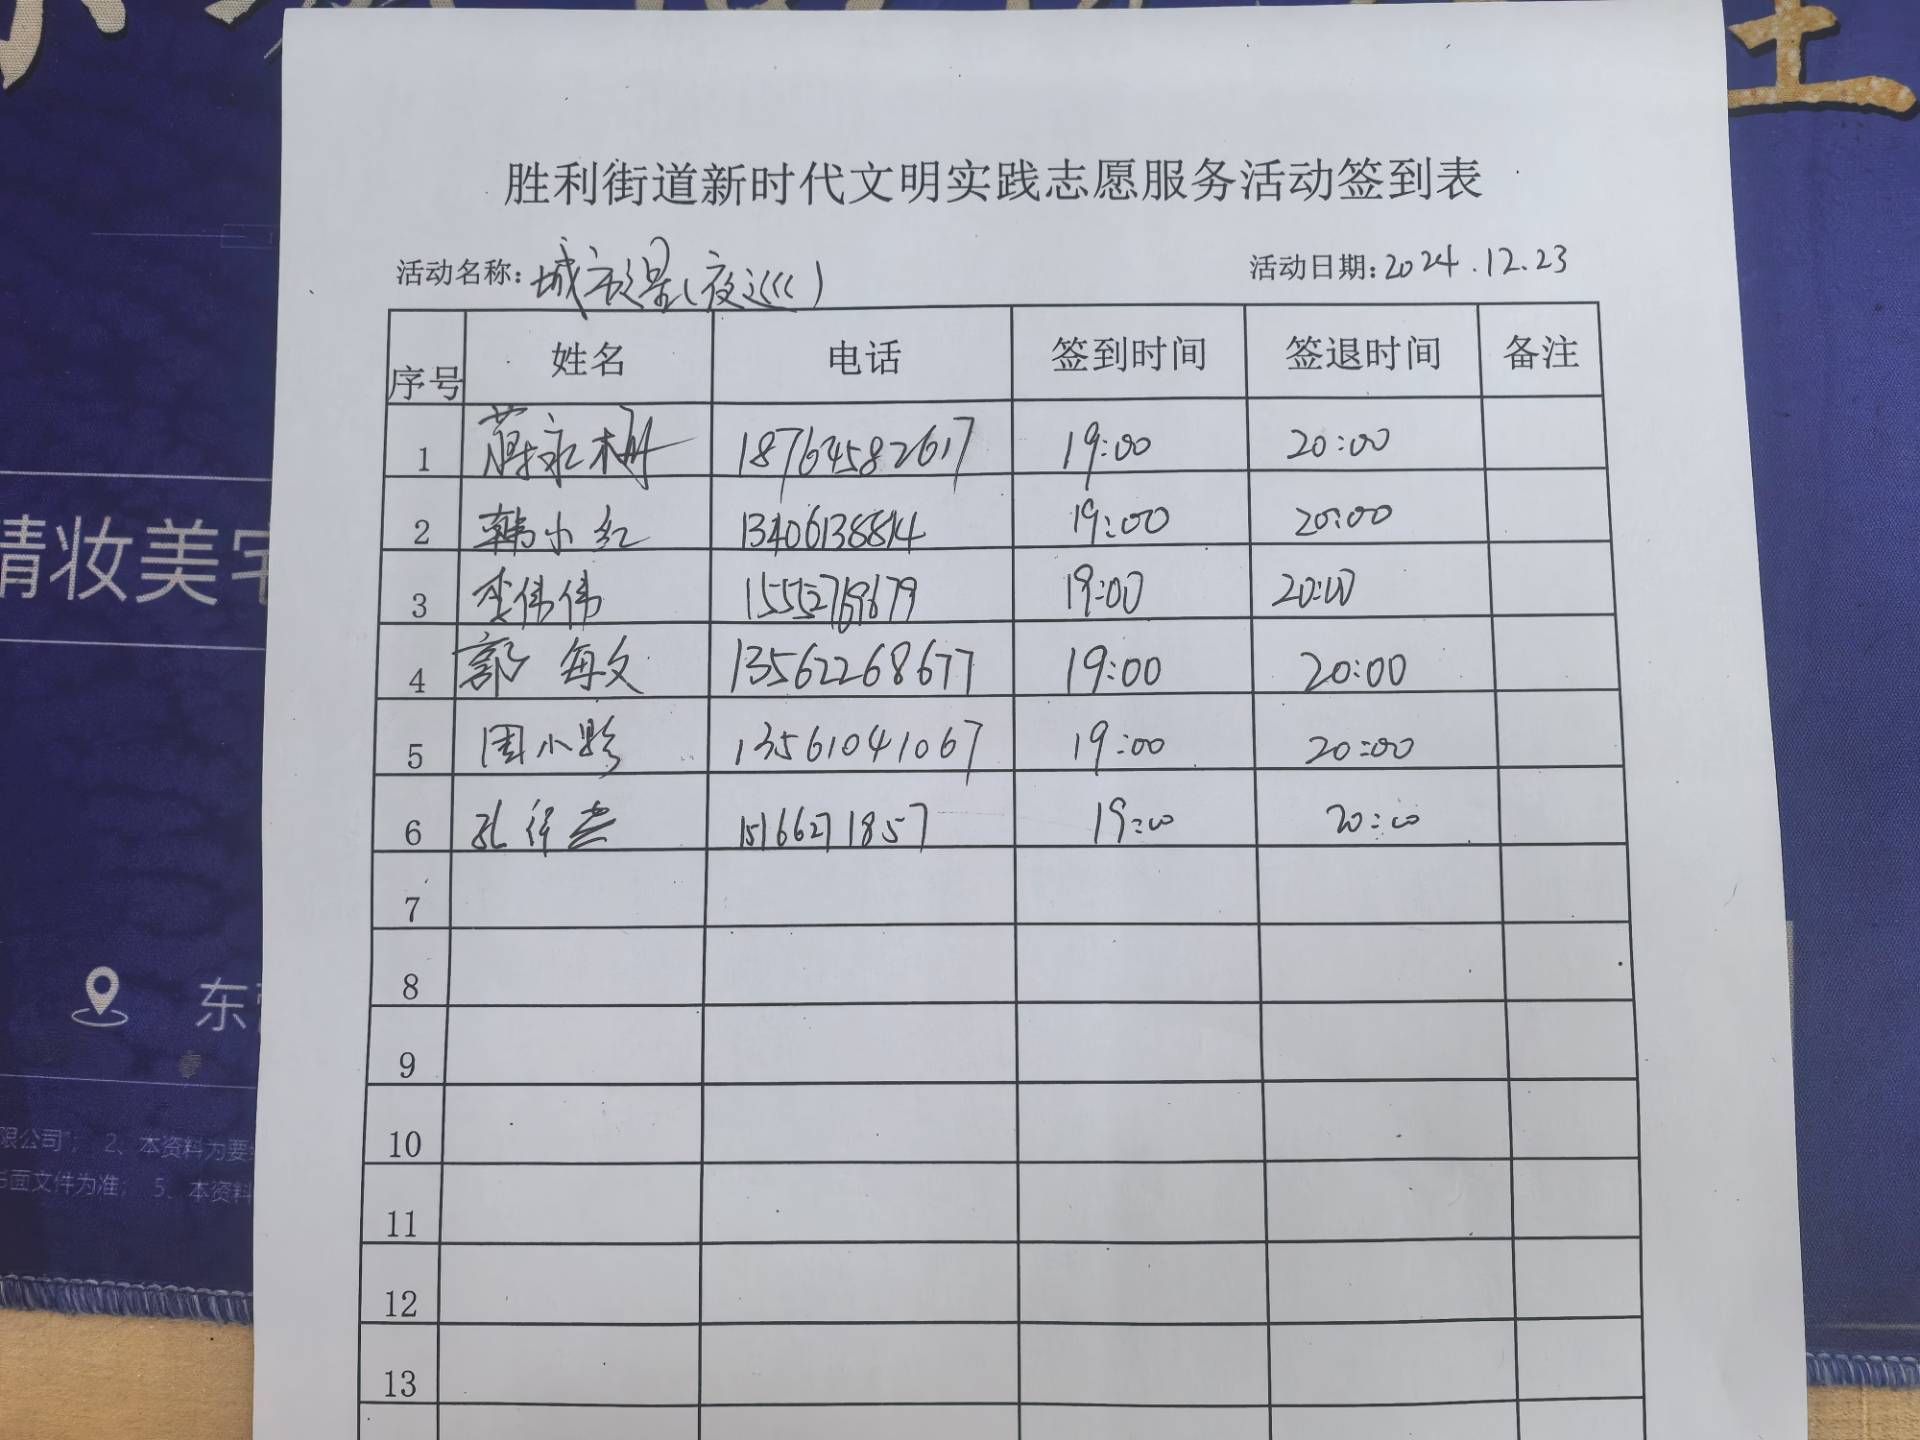 胜利街道新时代文明实践志愿服务活动签到表
活动名称: 城市(夜巡) 活动日期: 2024.12.23
序号 姓名 电话 签到时间 签退时间 备注
1 蒋永 18764582617 19:00 20:00
2 韩小红 13406138814 19:00 20:00
3 李伟伟 19:00 20:00
4 郭每文 13562268677 19:00 20:00
5 周小 13561041067 19:00 20:00
6 孔 15166271857 19:00 20:00
7
8
9
10
11
12
13
精妆美宅
东
限公司"; 2、本资料为要
书面文件为准; 5、本资料